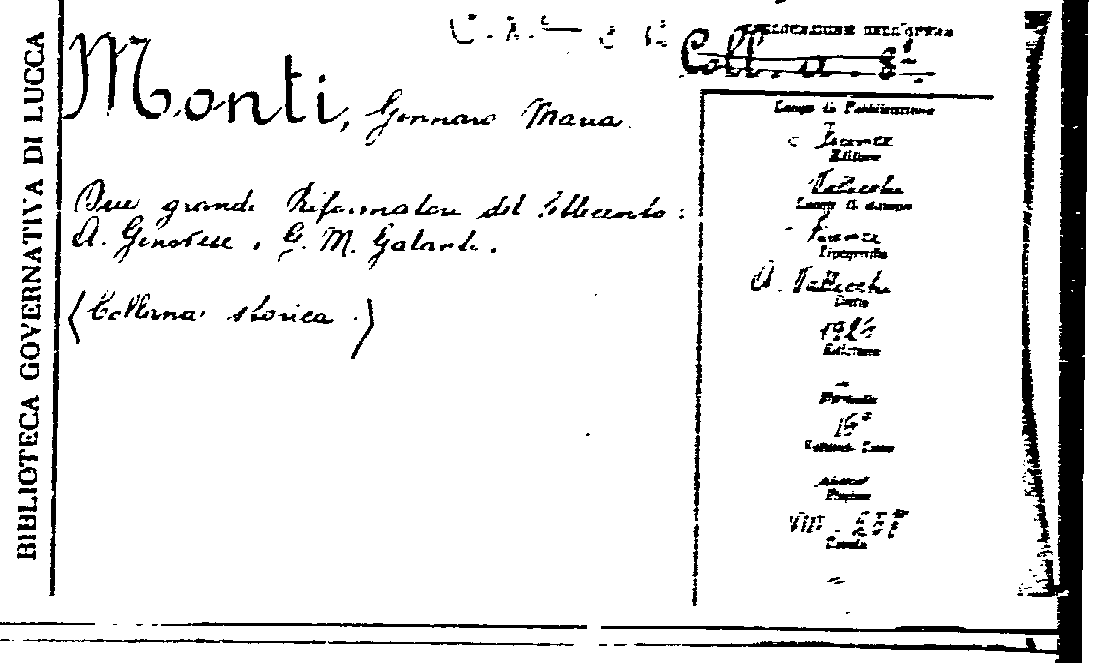 BIBLIOTECA GOVERNATIVA DI LUCCA
COLLOCAZIONE DELL'OPERA
Coll. a. 8
Monti, Gennaro Maria.
Due grandi Riformatori del Settecento:
A. Genovesi e G. M. Galanti.
(Collana storica.)
Luogo di Pubblicazione
Firenze
Editore
Vallecchi
Luogo di stampa
Firenze
Tipografia
A. Vallecchi
Data
Edizione
Formato
16°
Pagine
VIII